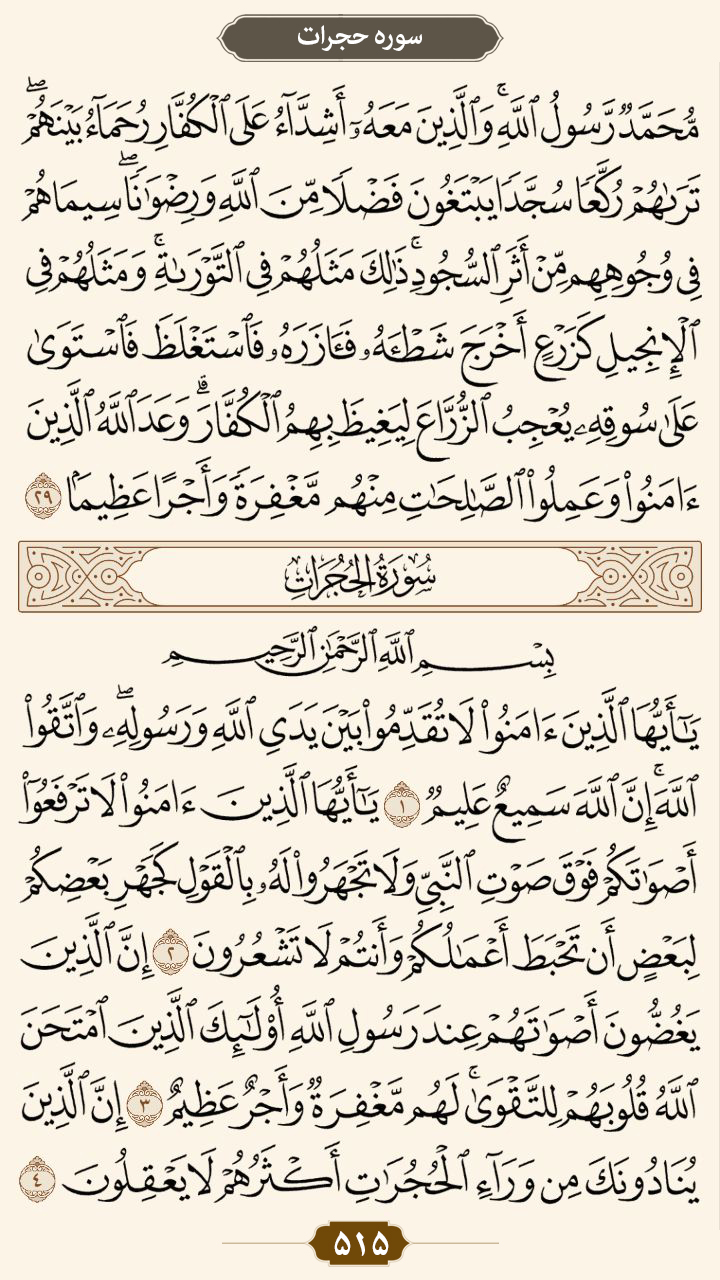 سوره حجرات
مُّحَمَّدٌ رَّسُولُ ٱللَّهِۚ وَٱلَّذِينَ مَعَهُۥٓ أَشِدَّآءُ عَلَى ٱلۡكُفَّارِ رُحَمَآءُ بَيۡنَهُمۡۖ
تَرَىٰهُمۡ رُكَّعٗا سُجَّدٗا يَبۡتَغُونَ فَضۡلٗا مِّنَ ٱللَّهِ وَرِضۡوَٰنٗاۖ سِيمَاهُمۡ
فِي وُجُوهِهِم مِّنۡ أَثَرِ ٱلسُّجُودِۚ ذَٰلِكَ مَثَلُهُمۡ فِي ٱلتَّوۡرَىٰةِۚ وَمَثَلُهُمۡ فِي
ٱلۡإِنجِيلِ كَزَرۡعٍ أَخۡرَجَ شَطۡـَٔهُۥ فَـَٔازَرَهُۥ فَٱسۡتَغۡلَظَ فَٱسۡتَوَىٰ
عَلَىٰ سُوقِهِۦ يُعۡجِبُ ٱلزُّرَّاعَ لِيَغِيظَ بِهِمُ ٱلۡكُفَّارَۗ وَعَدَ ٱللَّهُ ٱلَّذِينَ
ءَامَنُواْ وَعَمِلُواْ ٱلصَّٰلِحَٰتِ مِنۡهُم مَّغۡفِرَةٗ وَأَجۡرًا عَظِيمَۢا ٢٩
سُورَةُ الحُجُرَاتِ
بِسۡمِ ٱللَّهِ ٱلرَّحۡمَٰنِ ٱلرَّحِيمِ
يَٰٓأَيُّهَا ٱلَّذِينَ ءَامَنُواْ لَا تُقَدِّمُواْ بَيۡنَ يَدَيِ ٱللَّهِ وَرَسُولِهِۦۖ وَٱتَّقُواْ
ٱللَّهَۚ إِنَّ ٱللَّهَ سَمِيعٌ عَلِيمٞ ١ يَٰٓأَيُّهَا ٱلَّذِينَ ءَامَنُواْ لَا تَرۡفَعُوٓاْ
أَصۡوَٰتَكُمۡ فَوۡقَ صَوۡتِ ٱلنَّبِيِّ وَلَا تَجۡهَرُواْ لَهُۥ بِٱلۡقَوۡلِ كَجَهۡرِ بَعۡضِكُمۡ
لِبَعۡضٍ أَن تَحۡبَطَ أَعۡمَٰلُكُمۡ وَأَنتُمۡ لَا تَشۡعُرُونَ ٢ إِنَّ ٱلَّذِينَ
يَغُضُّونَ أَصۡوَٰتَهُمۡ عِندَ رَسُولِ ٱللَّهِ أُوْلَٰٓئِكَ ٱلَّذِينَ ٱمۡتَحَنَ
ٱللَّهُ قُلُوبَهُمۡ لِلتَّقۡوَىٰۚ لَهُم مَّغۡفِرَةٞ وَأَجۡرٌ عَظِيمٌ ٣ إِنَّ ٱلَّذِينَ
يُنَادُونَكَ مِن وَرَآءِ ٱلۡحُجُرَٰتِ أَكۡثَرُهُمۡ لَا يَعۡقِلُونَ ٤
۵۱۵